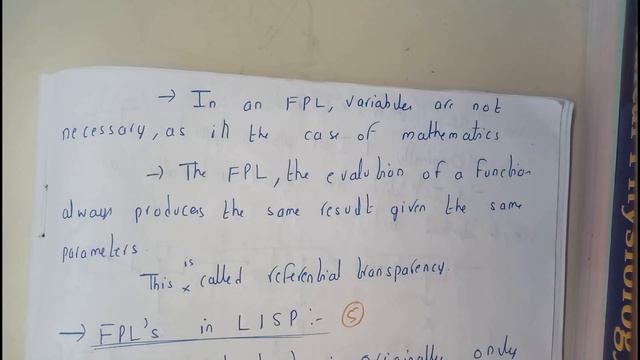 → In an FPL, variables are not
necessary, as in the case of mathematics
→ The FPL, the evalution of a function
always produces the same result given the same
parameters.
This is called referential transparency.
→ FPL's in LISP :- 5
originally only
Physiology